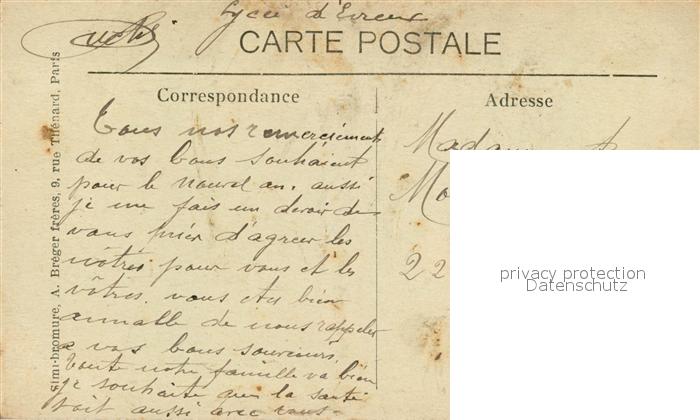 Lycée d'Evreux
CARTE POSTALE
Correspondance
Adresse
Tous nos remerciements
de vos bons souhaient
pour le nouvel an. aussi
je me fais un devoir de
vous prier d'agreer les
nôtres pour vous et les
vôtres. vous etes bien
aimable de nous rappeler
a vos bons souvenirs
toute notre famille va bien
je souhaite que la santé
soit aussi avec vous-
Madame
22
privacy protection
Datenschutz
Simi-bromure, A. Bréger frères, 9, rue Thénard, Paris